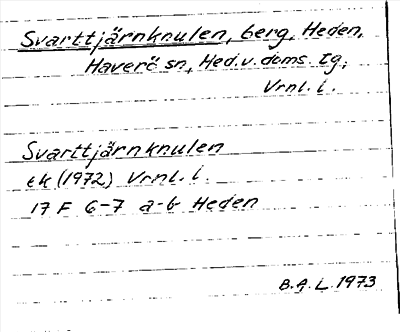 Svarttjärnknulen, berg, Heden,
Haverö sn, Med.v.doms. tg,
Vrnl. l.
Svarttjärnknulen
ek (1972) Vrnl. l.
17 F 6-7 a-b Heden
B.A.L. 1973